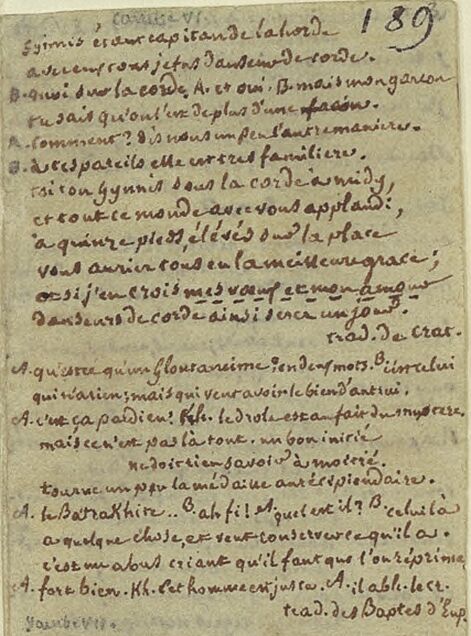 189
Gymnis étant capitan de la horde
avec eux tous je fus danseur de corde.
B. quoi sur la corde, A. et oui. B. mais mon garcon
tu sais qu'on l'est de plus d'une facon.
A. comment? dis nous un peu l'autre maniere.
B. à tes pareils elle est tres familiere.
toi ton Gymnis sous la corde à midy,
et tout ce monde avec vous applaudi,
à quinze pieds, élévés sur la place
vous auriez tous eu la meilleure grace;
et si j'en crois mes vœux et mon amour
danseurs de corde ainsi serez un jour.
trad. de Crat.
A. qu'est ce qu'un en deux mots. B. c'est celui
qui n'a rien; mais qui veut avoir le bien d'autrui.
A. c'est ça pardieu! Kh. le drole est au fait du mystere,
mais ce n'est pas là tout. un bon initié
ne doit rien savoir à moitié.
tourne un peu la médaille au récipiendaire.
A. le Batrakhite.. B. ah fi! A. quel est il? B. celui là
a quelque chose, et veut conserver ce qu'il a.
c'est un abus criant qu'il faut que l'on réprime.
A. fort bien. Kh. cet homme est juste. A. il
trad. des Baptes d'Eup.